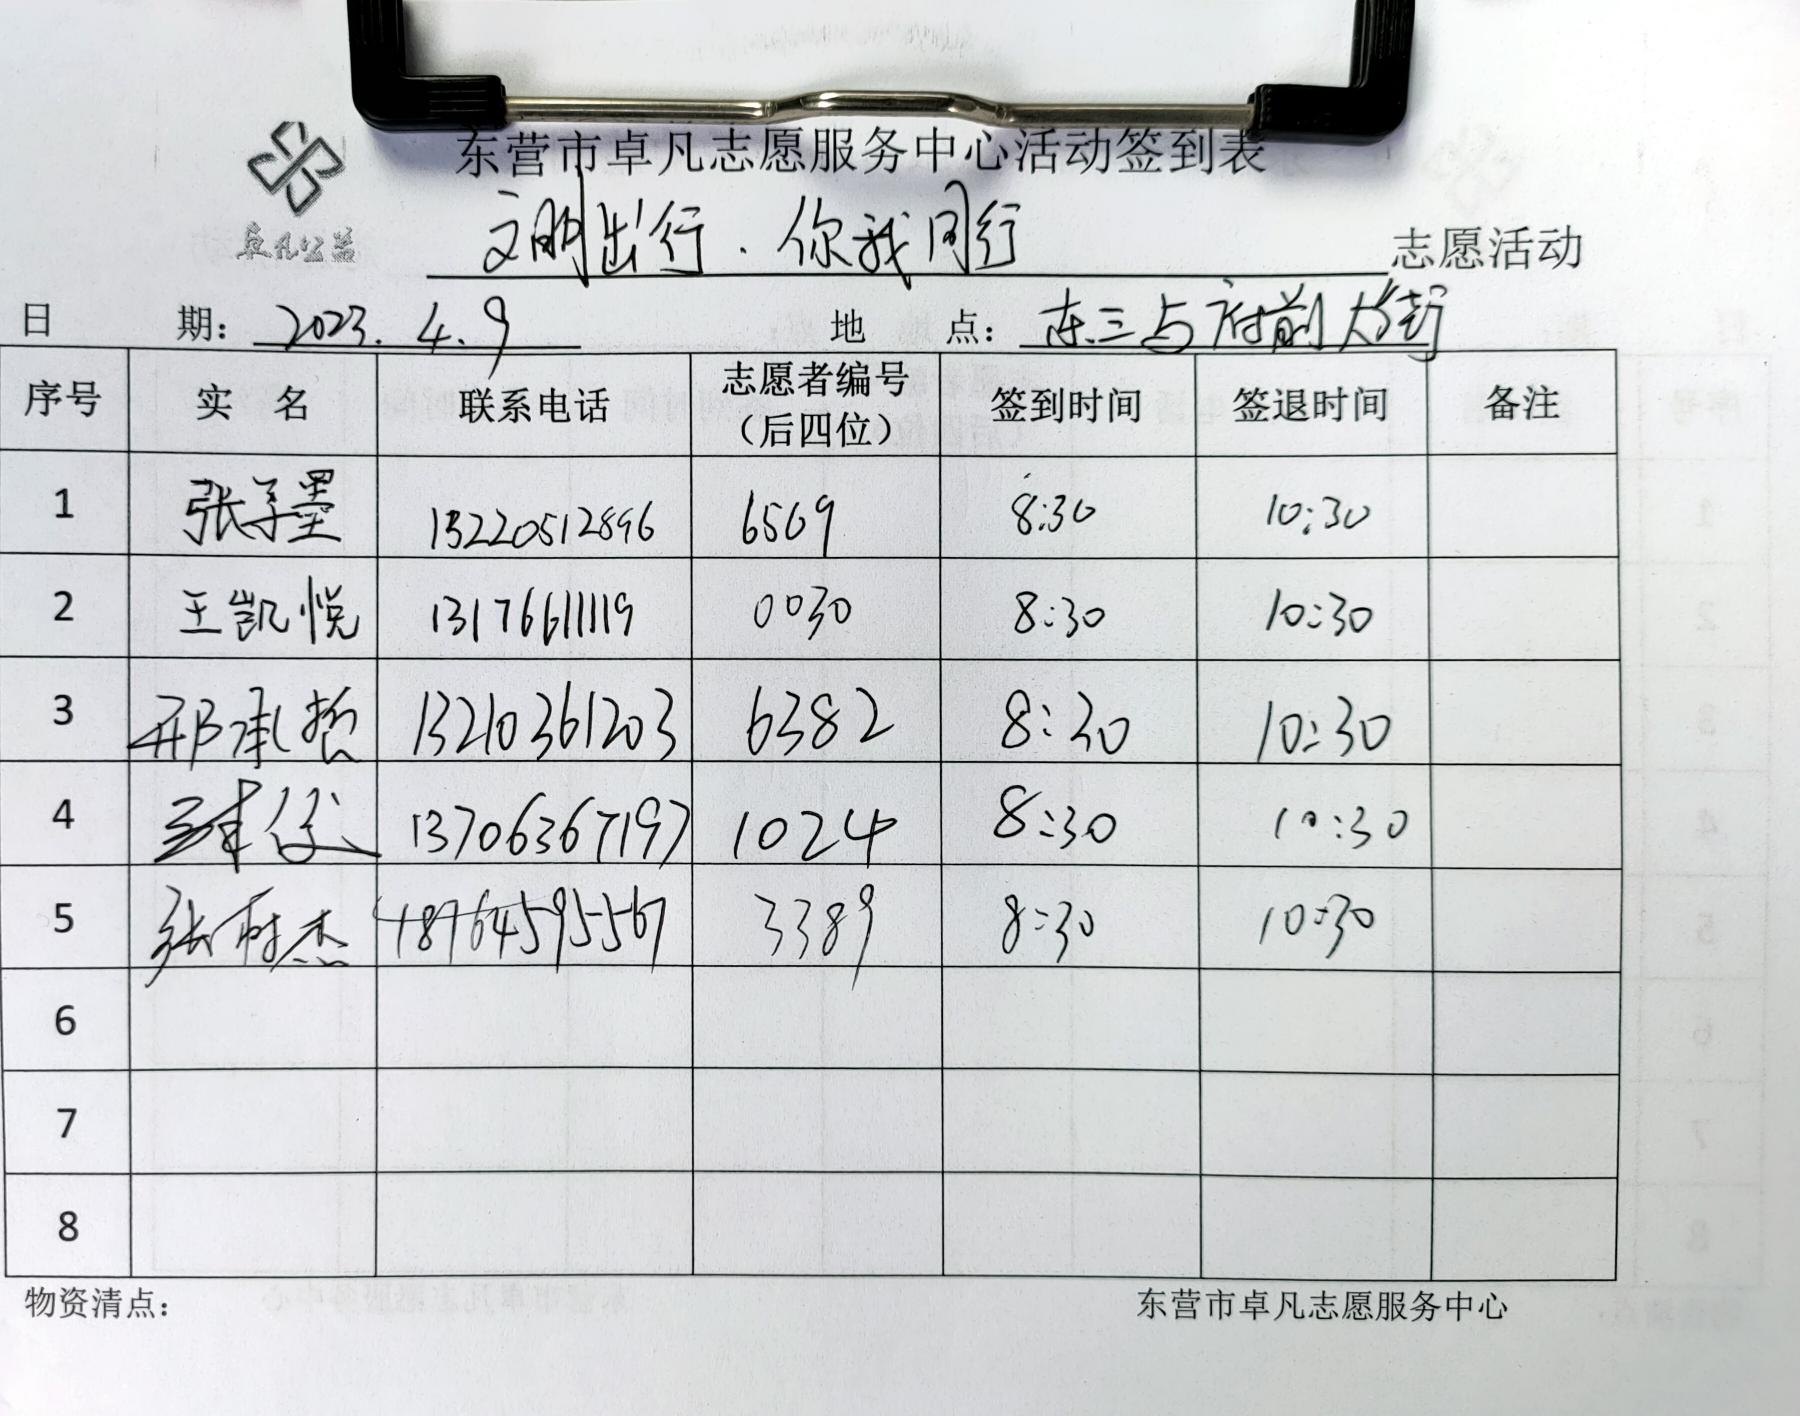 东营市卓凡志愿服务中心活动签到表
卓凡公益
文明出行.你我同行 志愿活动
日 期：2023.4.9 地 点：东三与府前大街
序号 实 名 联系电话 志愿者编号（后四位） 签到时间 签退时间 备注
1 张子墨 13220512896 6509 8:30 10:30
2 王凯悦 13176611119 0030 8:30 10:30
3 邢承哲 13210361203 6382 8:30 10:30
4 13706367197 1024 8:30 10:30
5 张 杰 18764595567 3389 8:30 10:30
6
7
8
物资清点： 东营市卓凡志愿服务中心